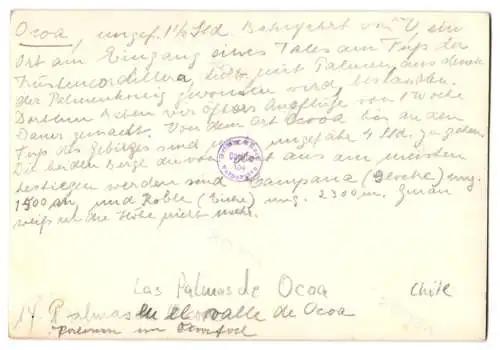 Ocoa, ungef. 1½ Std. Bahnfahrt von V, ein
Ort am Eingang eines Tales am Fuss der
Küstencordillera, mit Palmen, aus denen
der Palmenhonig gewonnen wird, bestanden.
Dorthin haben wir öfters Ausflüge von 1 Woche
Dauer gemacht. Von dem Ort Ocoa bis an den
Fuss des Gebirges sind ungefähr 4 Std. zu gehen.
Die beiden Berge die von aus am meisten
bestiegen werden sind Campana (Glocke) ung.
1500 m, und Roble (Eiche) ung. 2300 m. Genau
weiss ich die Höhe nicht mehr.
Las Palmas de Ocoa
Chile
14 Palmas en el valle de Ocoa
Palmen im